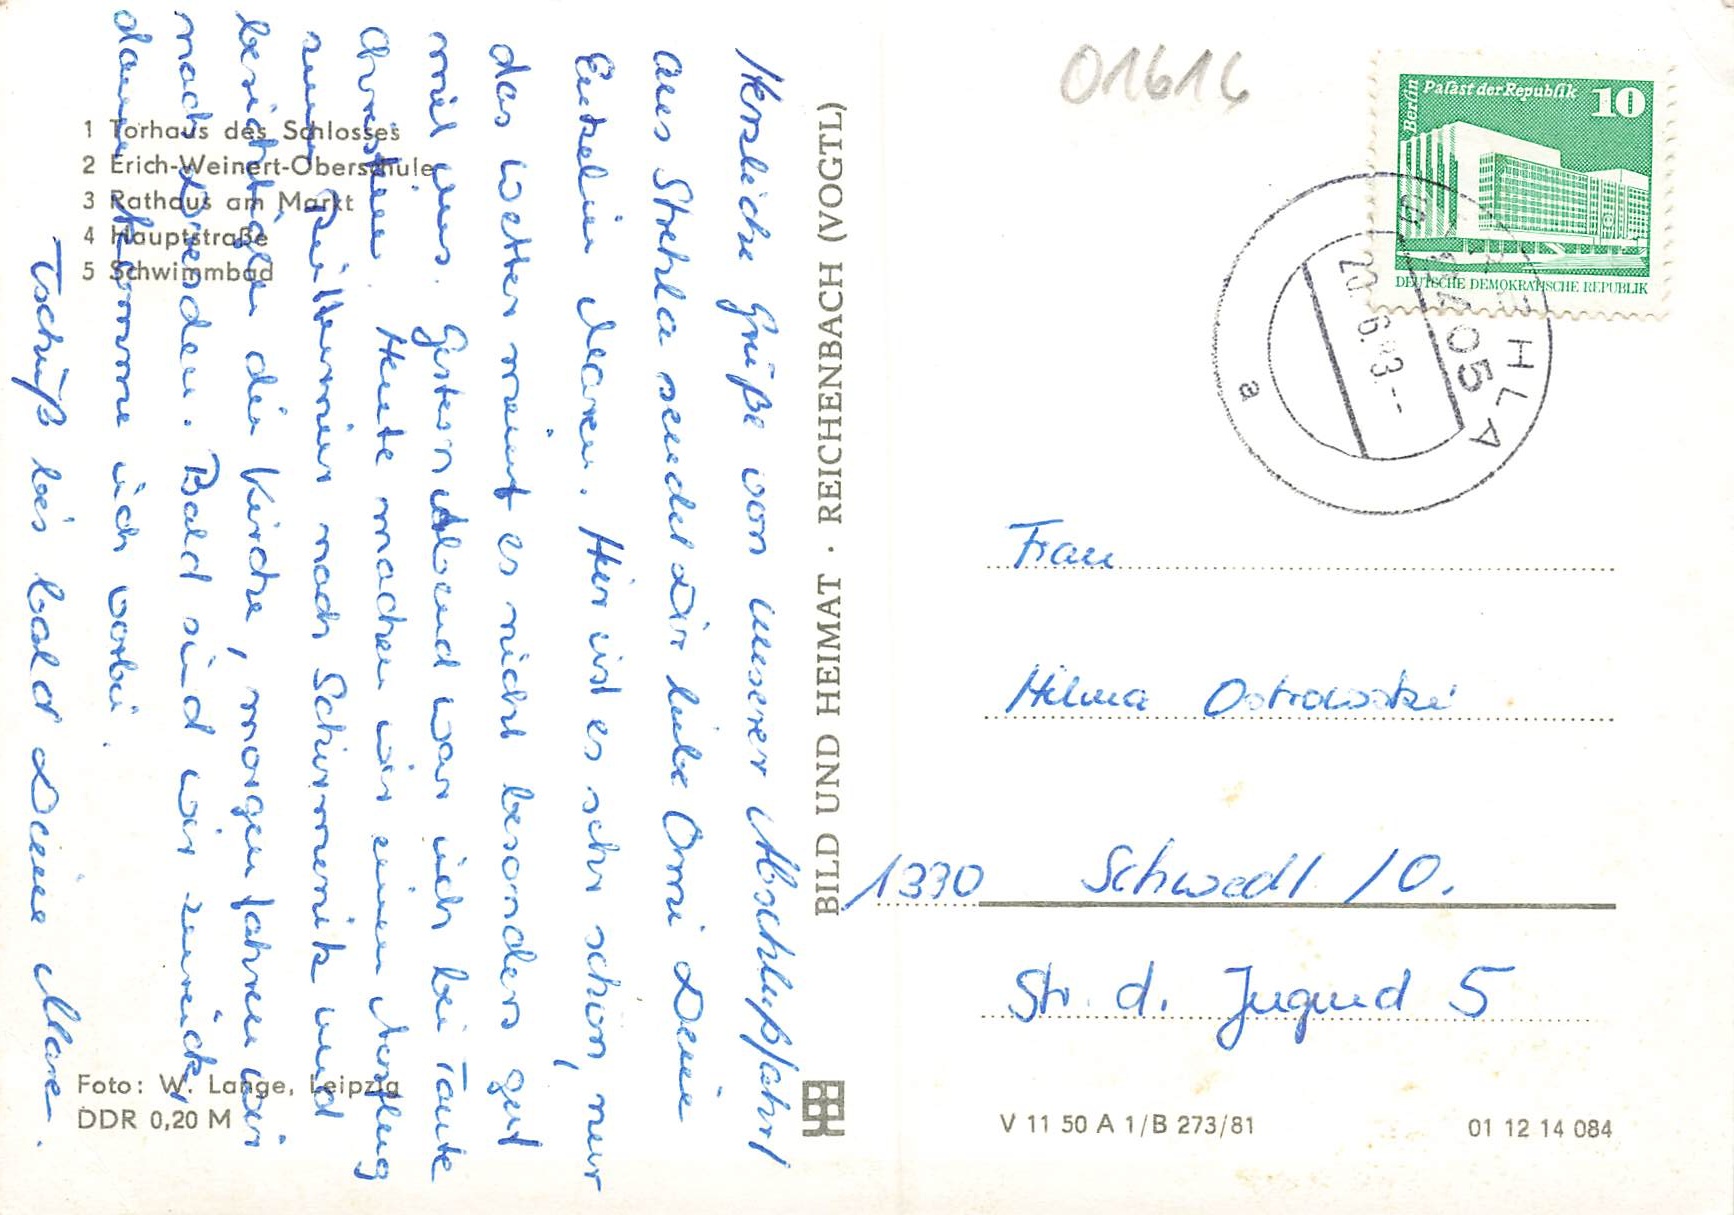 1 Torhaus des Schlosses
2 Erich-Weinert-Oberschule
3 Rathaus am Markt
4 Hauptstraße
5 Schwimmbad
Herzliche Grüße von unserer Abschlußfahrt
aus Strehla sendet Dir liebe Omi Deine
Enkelin Maren. Hier ist es sehr schön, nur
das Wetter meint es nicht besonders gut
mit uns. Gestern Abend war ich bei Tante
Christin. Heute machen wir einen Ausflug
zum nach Schirmenitz und
besichtigen die Kirche, morgen fahren wir
nach Dresden. Bald sind wir zurück,
dann komme ich vorbei.
Tschüß bis bald Deine Maren.
Foto: W. Lange, Leipzig
DDR 0,20 M
BILD UND HEIMAT · REICHENBACH (VOGTL)
01616
Berlin
Palast der Republik
10
DEUTSCHE DEMOKRATISCHE REPUBLIK
STREHLA
a
Frau
Hilma Ostrowski
1330 Schwedt / O.
Str. d. Jugend 5
V 11 50 A 1/B 273/81
01 12 14 084